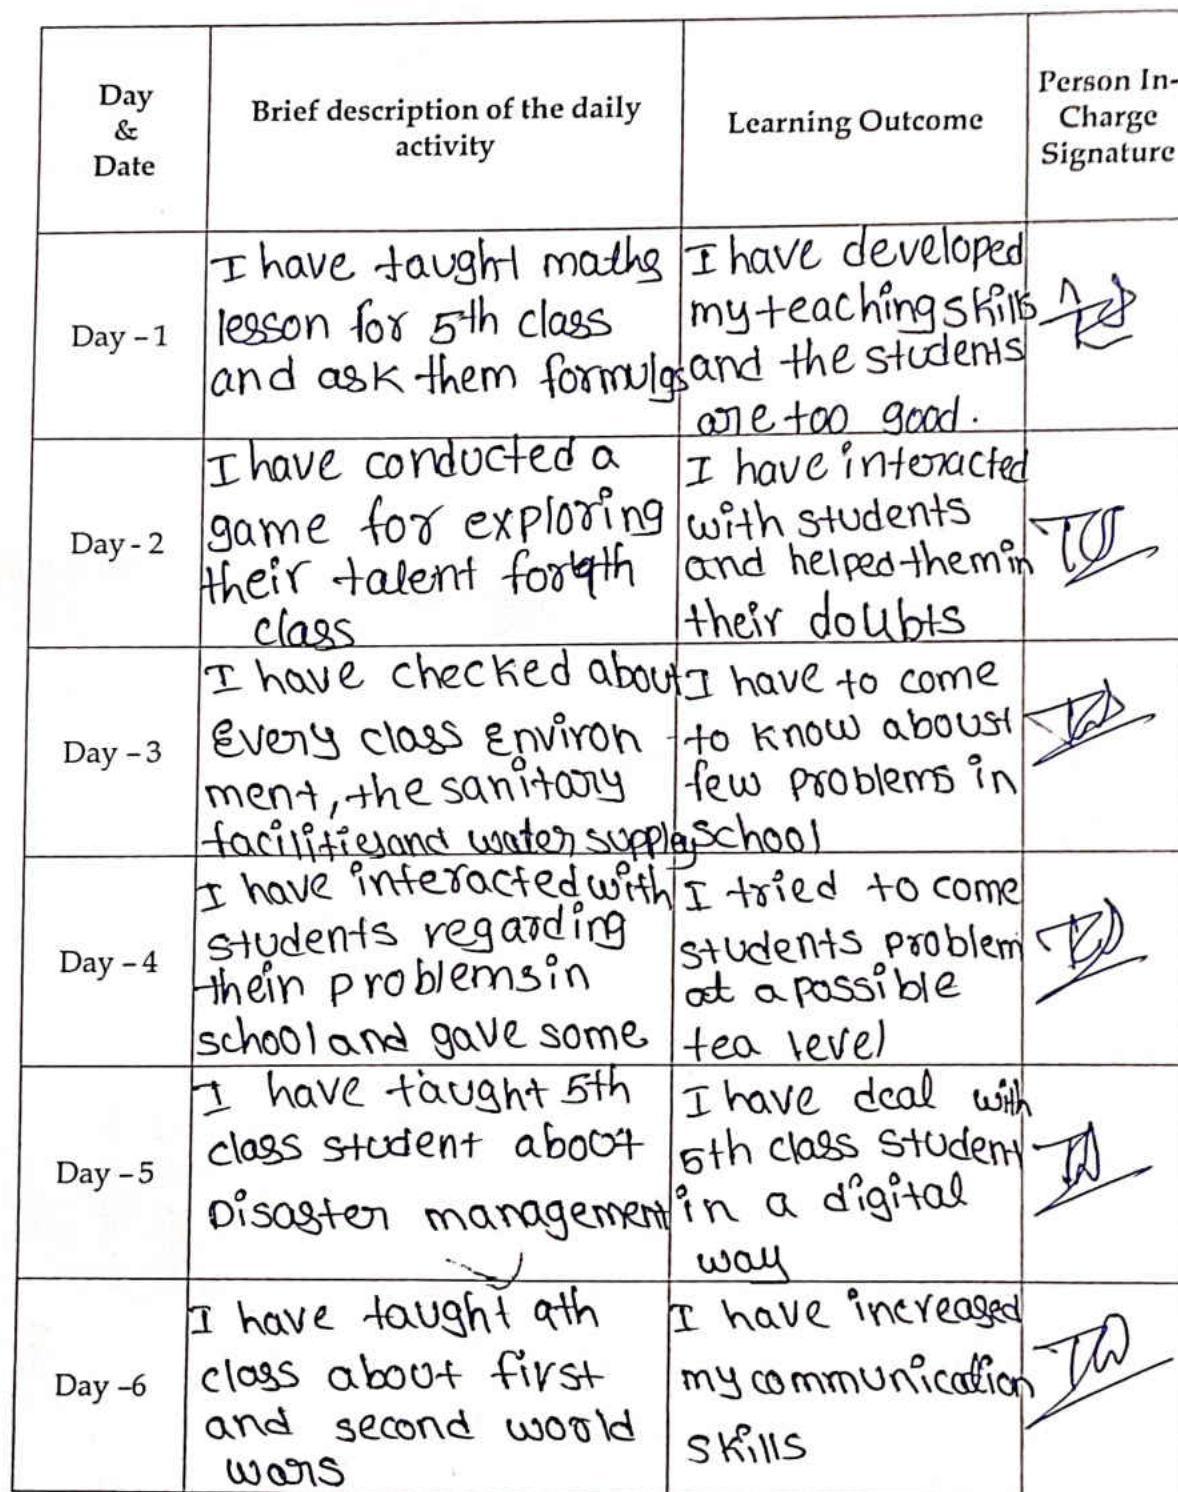 Day
&
Date
Brief description of the daily
activity
Learning Outcome
Person In-
Charge
Signature
Day – 1
I have taught maths
lesson for 5th class
and ask them formulas
I have developed
my teaching skills
and the students
are too good.
Day - 2
I have conducted a
game for exploring
their talent for 9th
class
I have interacted
with students
and helped them in
their doubts
Day – 3
I have checked about
Every class Environ
ment, the sanitary
facilities and water supply
I have to come
to know about
few problems in
school
Day – 4
I have interacted with
students regarding
their problems in
school and gave some
I tried to come
students problem
at a possible
tea level
Day – 5
I have taught 5th
class student about
Disaster management
I have deal with
5th class student
in a digital
way
Day -6
I have taught 9th
class about first
and second world
wars
I have increased
my communication
skills